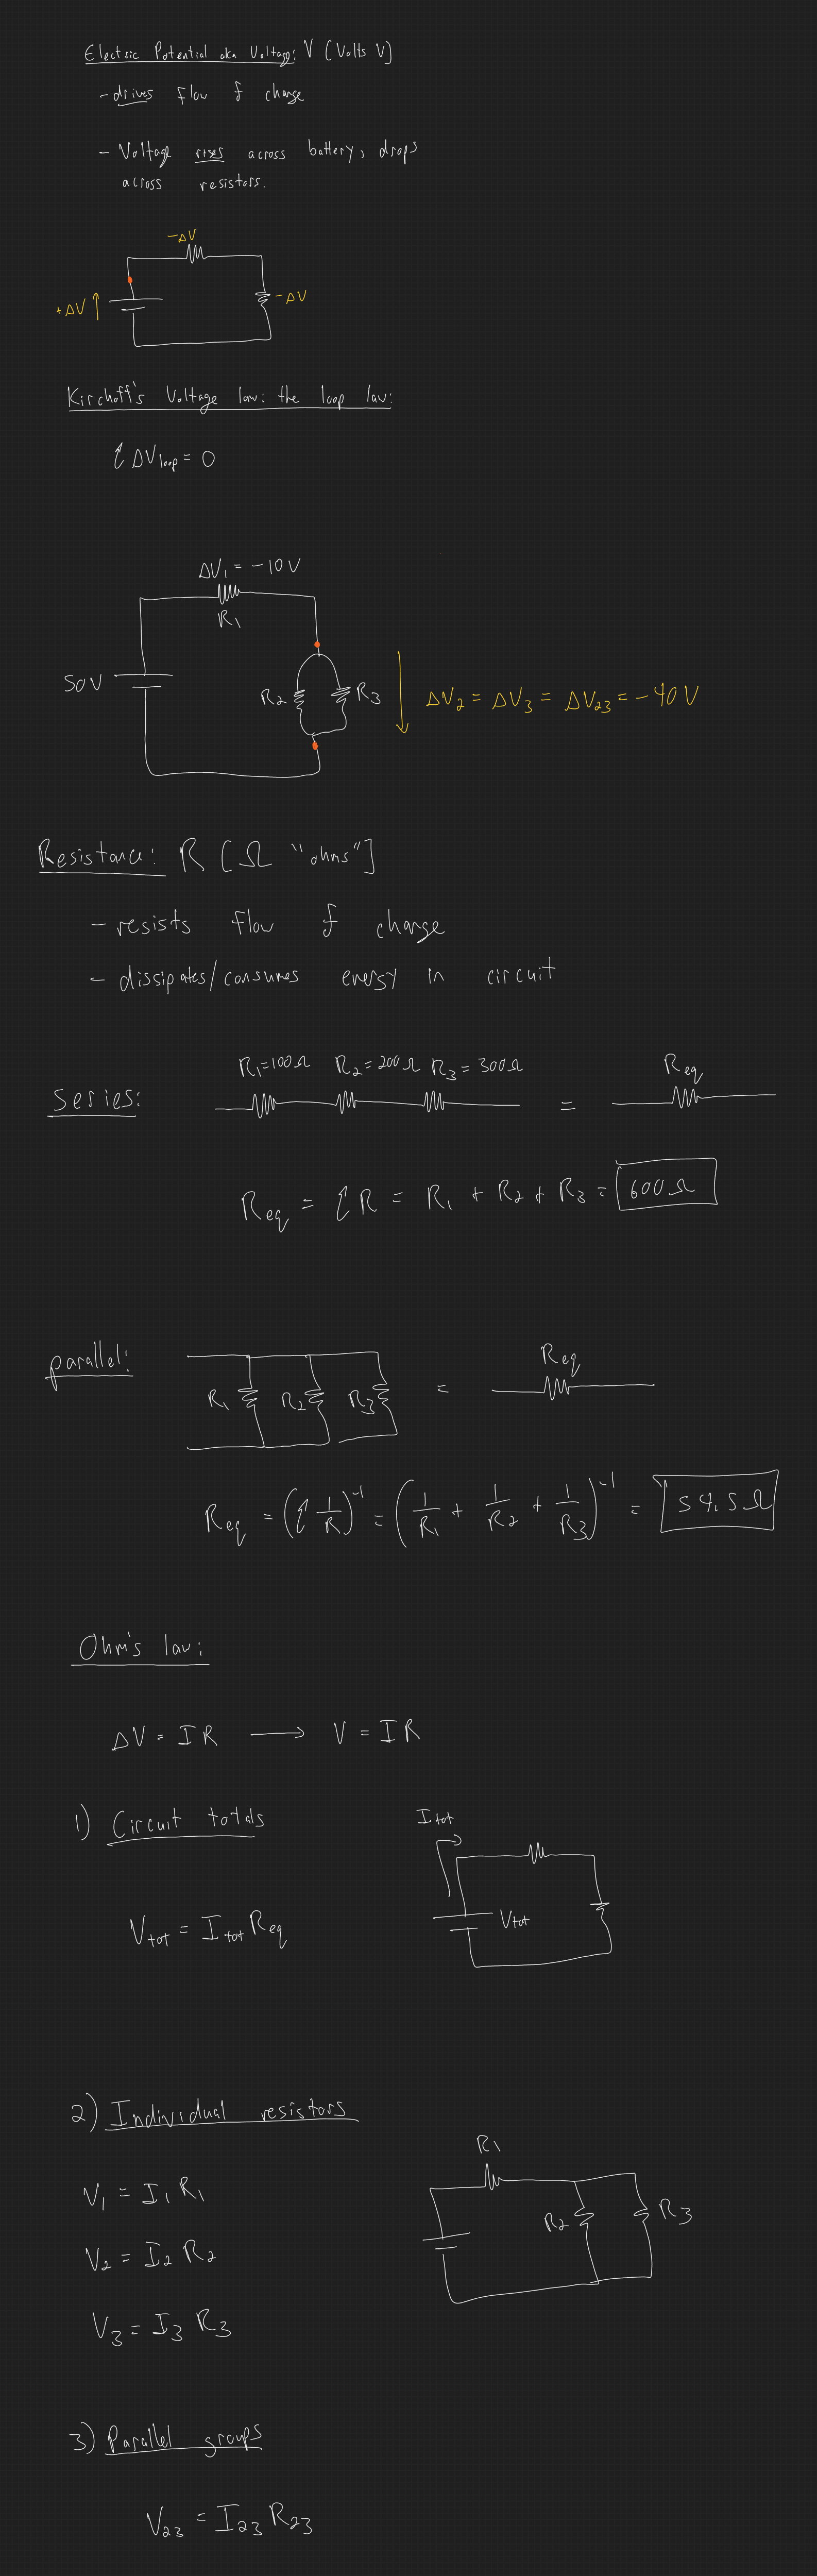 Electric Potential aka Voltage: V (Volts V)
- drives flow of charge
- Voltage rises across battery, drops
across resistors.
-ΔV
+ΔV ↑
-ΔV
Kirchoff's Voltage law: the loop law:
Σ ΔV loop = 0
ΔV₁ = -10V
R₁
50V
R₂
R₃
ΔV₂ = ΔV₃ = ΔV₂₃ = -40V
Resistance: R [Ω "ohms"]
- resists flow of charge
- dissipates/consumes energy in circuit
R₁=100Ω R₂=200Ω R₃=300Ω
Req
series:
=
Req = ΣR = R₁ + R₂ + R₃ = 600Ω
parallel:
R₁
R₂
R₃
=
Req
Req = (Σ 1/R)⁻¹ = (1/R₁ + 1/R₂ + 1/R₃)⁻¹ = 54.5Ω
Ohm's law:
ΔV = IR → V = IR
1) Circuit totals
Itot
Vtot = Itot Req
Vtot
2) Individual resistors
R₁
V₁ = I₁R₁
R₂
R₃
V₂ = I₂R₂
V₃ = I₃R₃
3) Parallel groups
V₂₃ = I₂₃R₂₃